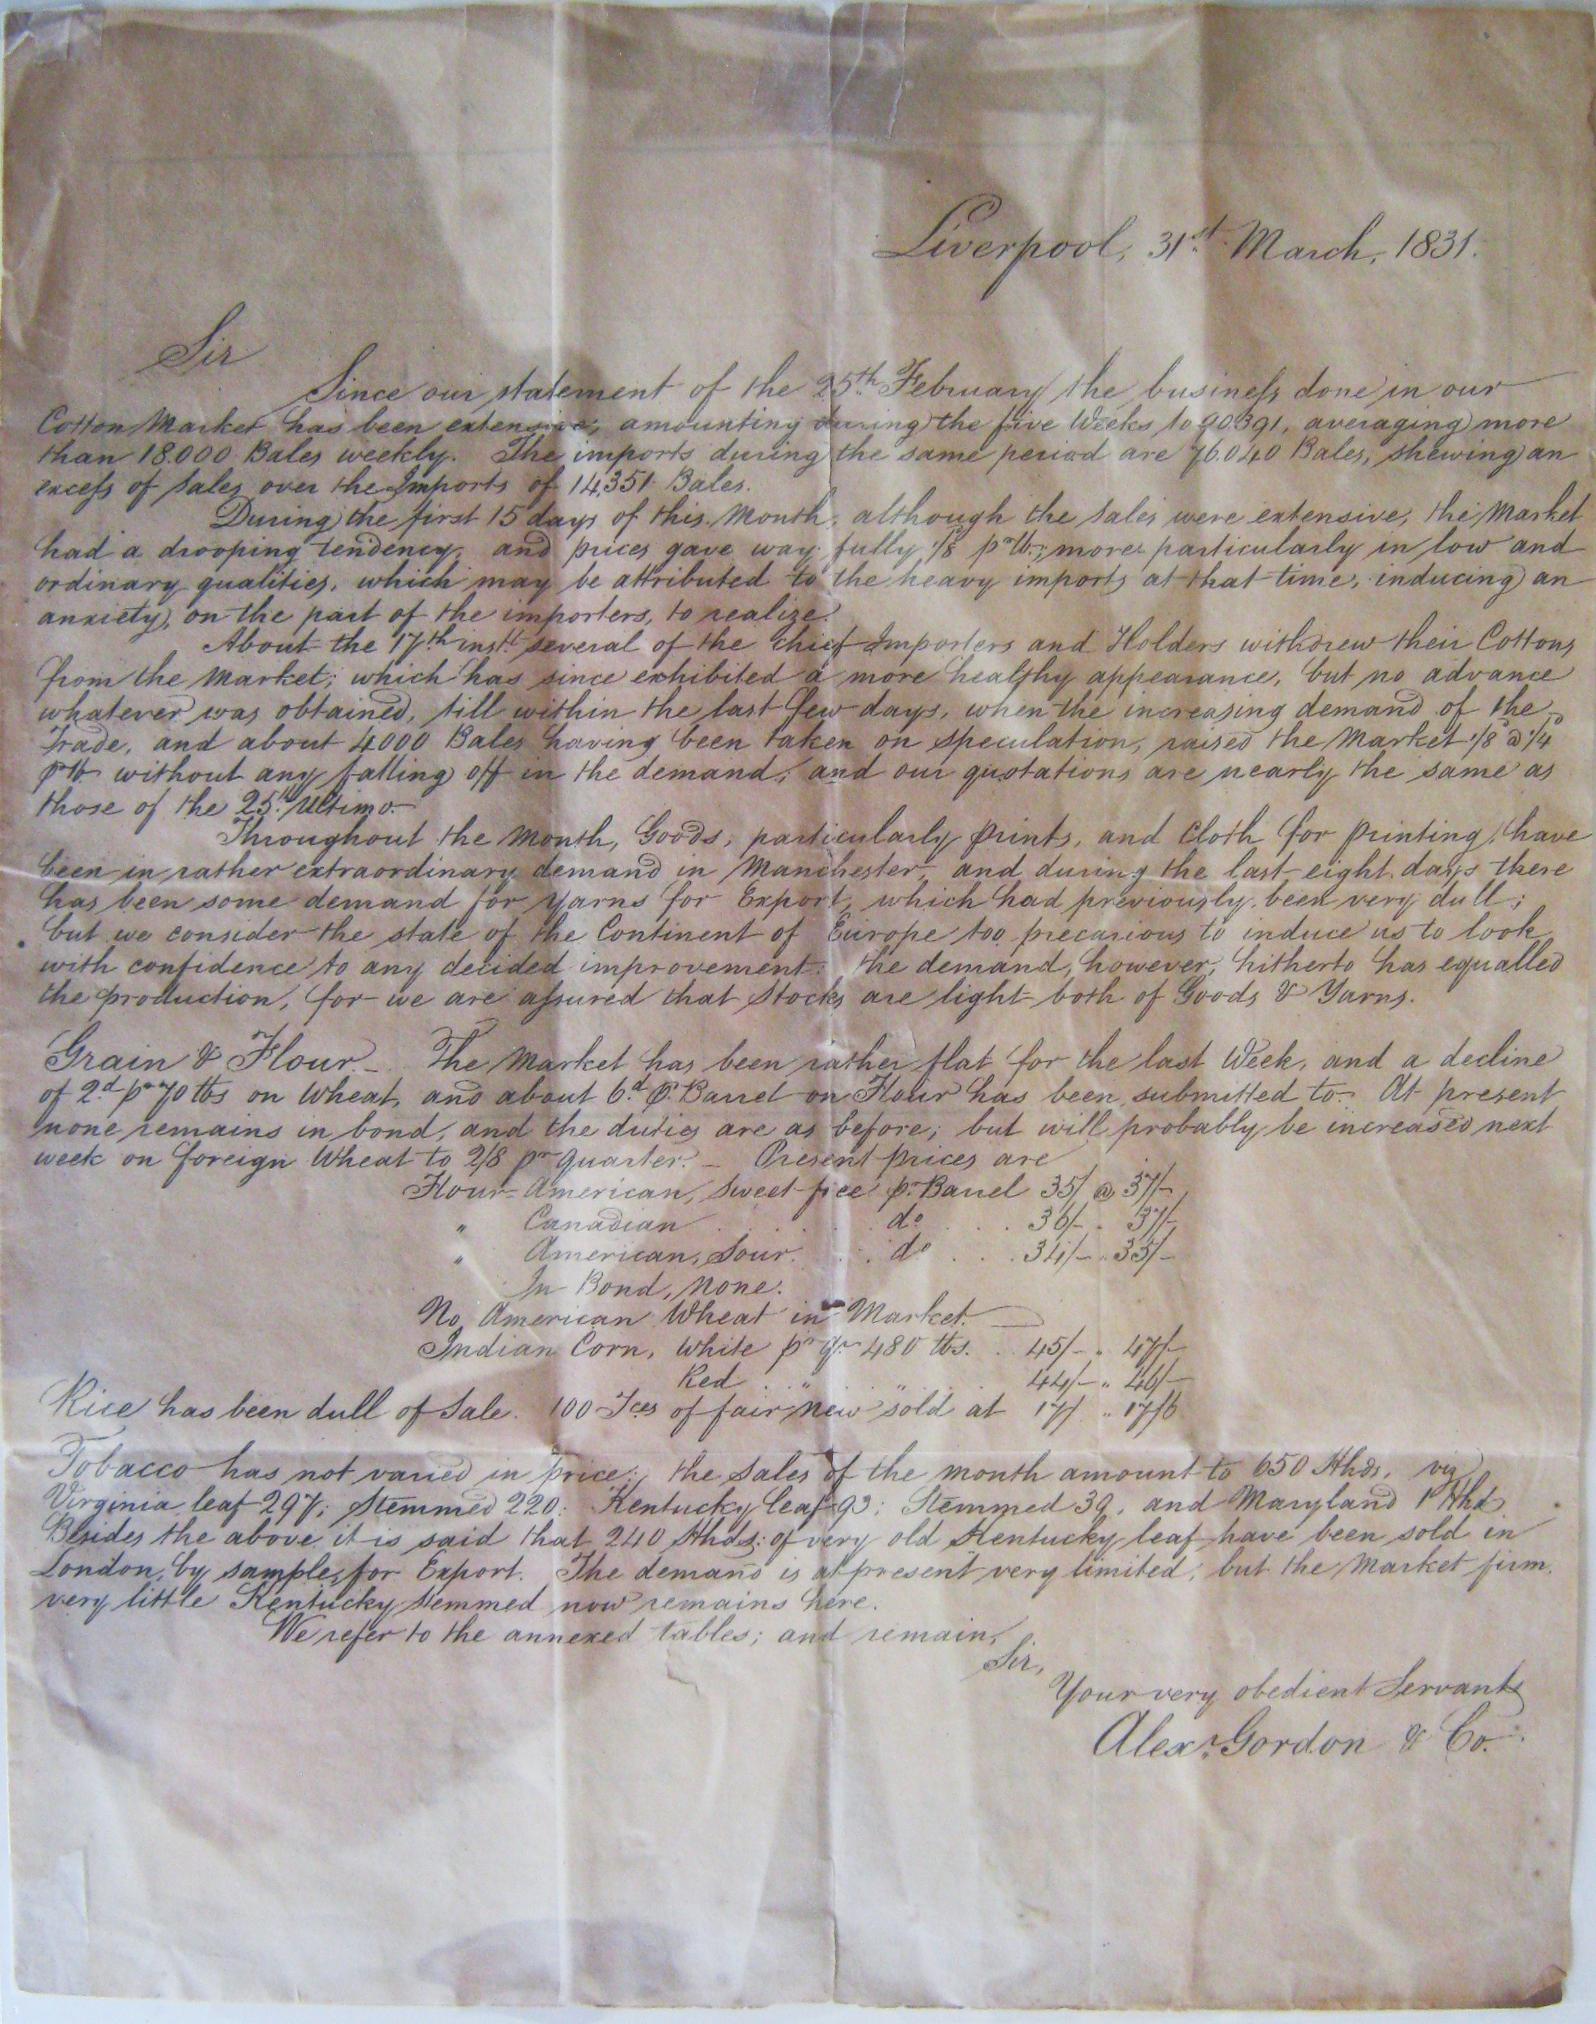 Liverpool, 31st March, 1831.
Sir
Since our statement of the 25th February the business done in our
Cotton Market has been extensive, amounting during the five Weeks to 90.391, averaging more
than 18.000 Bales weekly. The imports during the same period are 76.040 Bales, shewing an
excess of Sales over the Imports of 14,351 Bales.
During the first 15 days of this Month, although the Sales were extensive, the Market
had a drooping tendency, and prices gave way fully 1/8 pr lb; more particularly in low and
ordinary qualities, which may be attributed to the heavy imports at that time, inducing an
anxiety, on the part of the importers, to realize.
About the 17th inst. several of the chief Importers and Holders withdrew their Cottons
from the Market; which has since exhibited a more healthy appearance, but no advance
whatever was obtained, till within the last few days, when the increasing demand of the
Trade, and about 4000 Bales having been taken on speculation, raised the Market 1/8 @ 1/4
p lb without any falling off in the demand; and our quotations are nearly the same as
those of the 25th Ultimo.
Throughout the Month, Goods, particularly prints, and cloth for printing, have
been in rather extraordinary demand in Manchester, and during the last eight days there
has been some demand for Yarns for Export, which had previously been very dull;
but we consider the state of the Continent of Europe too precarious to induce us to look
with confidence to any decided improvement: the demand, however, hitherto has equalled
the production, for we are assured that Stocks are light both of Goods & Yarns.
Grain & Flour. The Market has been rather flat for the last Week, and a decline
of 2d pr 70 lbs on Wheat, and about 6d pr Barrel on Flour has been submitted to. At present
none remains in bond, and the duties are as before; but will probably be increased next
week on foreign Wheat to 2/8 pr quarter. – Present prices are
Flour – American, Sweet free pr Barrel 35/ @ 37/-
" Canadian . . . . do . . . 36/- " 37/-
" American, Sour . . . do . . . 34/- " 35/-
In Bond, None.
No American Wheat in Market.
Indian Corn, White pr qr 480 lbs. . 45/- " 47/-
Red . " . . " . . 44/- " 46/-
Rice has been dull of Sale. 100 Tces of fair new sold at 17/ " 17/6
Tobacco has not varied in price; the Sales of the month amount to 650 Hhds, viz
Virginia leaf 297; Stemmed 220: Kentucky leaf 93; Stemmed 39, and Maryland 1 Hhd.
Besides the above it is said that 240 Hhds: of very old Kentucky leaf have been sold in
London, by sample, for Export. The demand is at present very limited, but the Market firm.
very little Kentucky Stemmed now remains here.
We refer to the annexed tables; and remain,
Sir,
Your very obedient Servants
Alexr Gordon & Co.